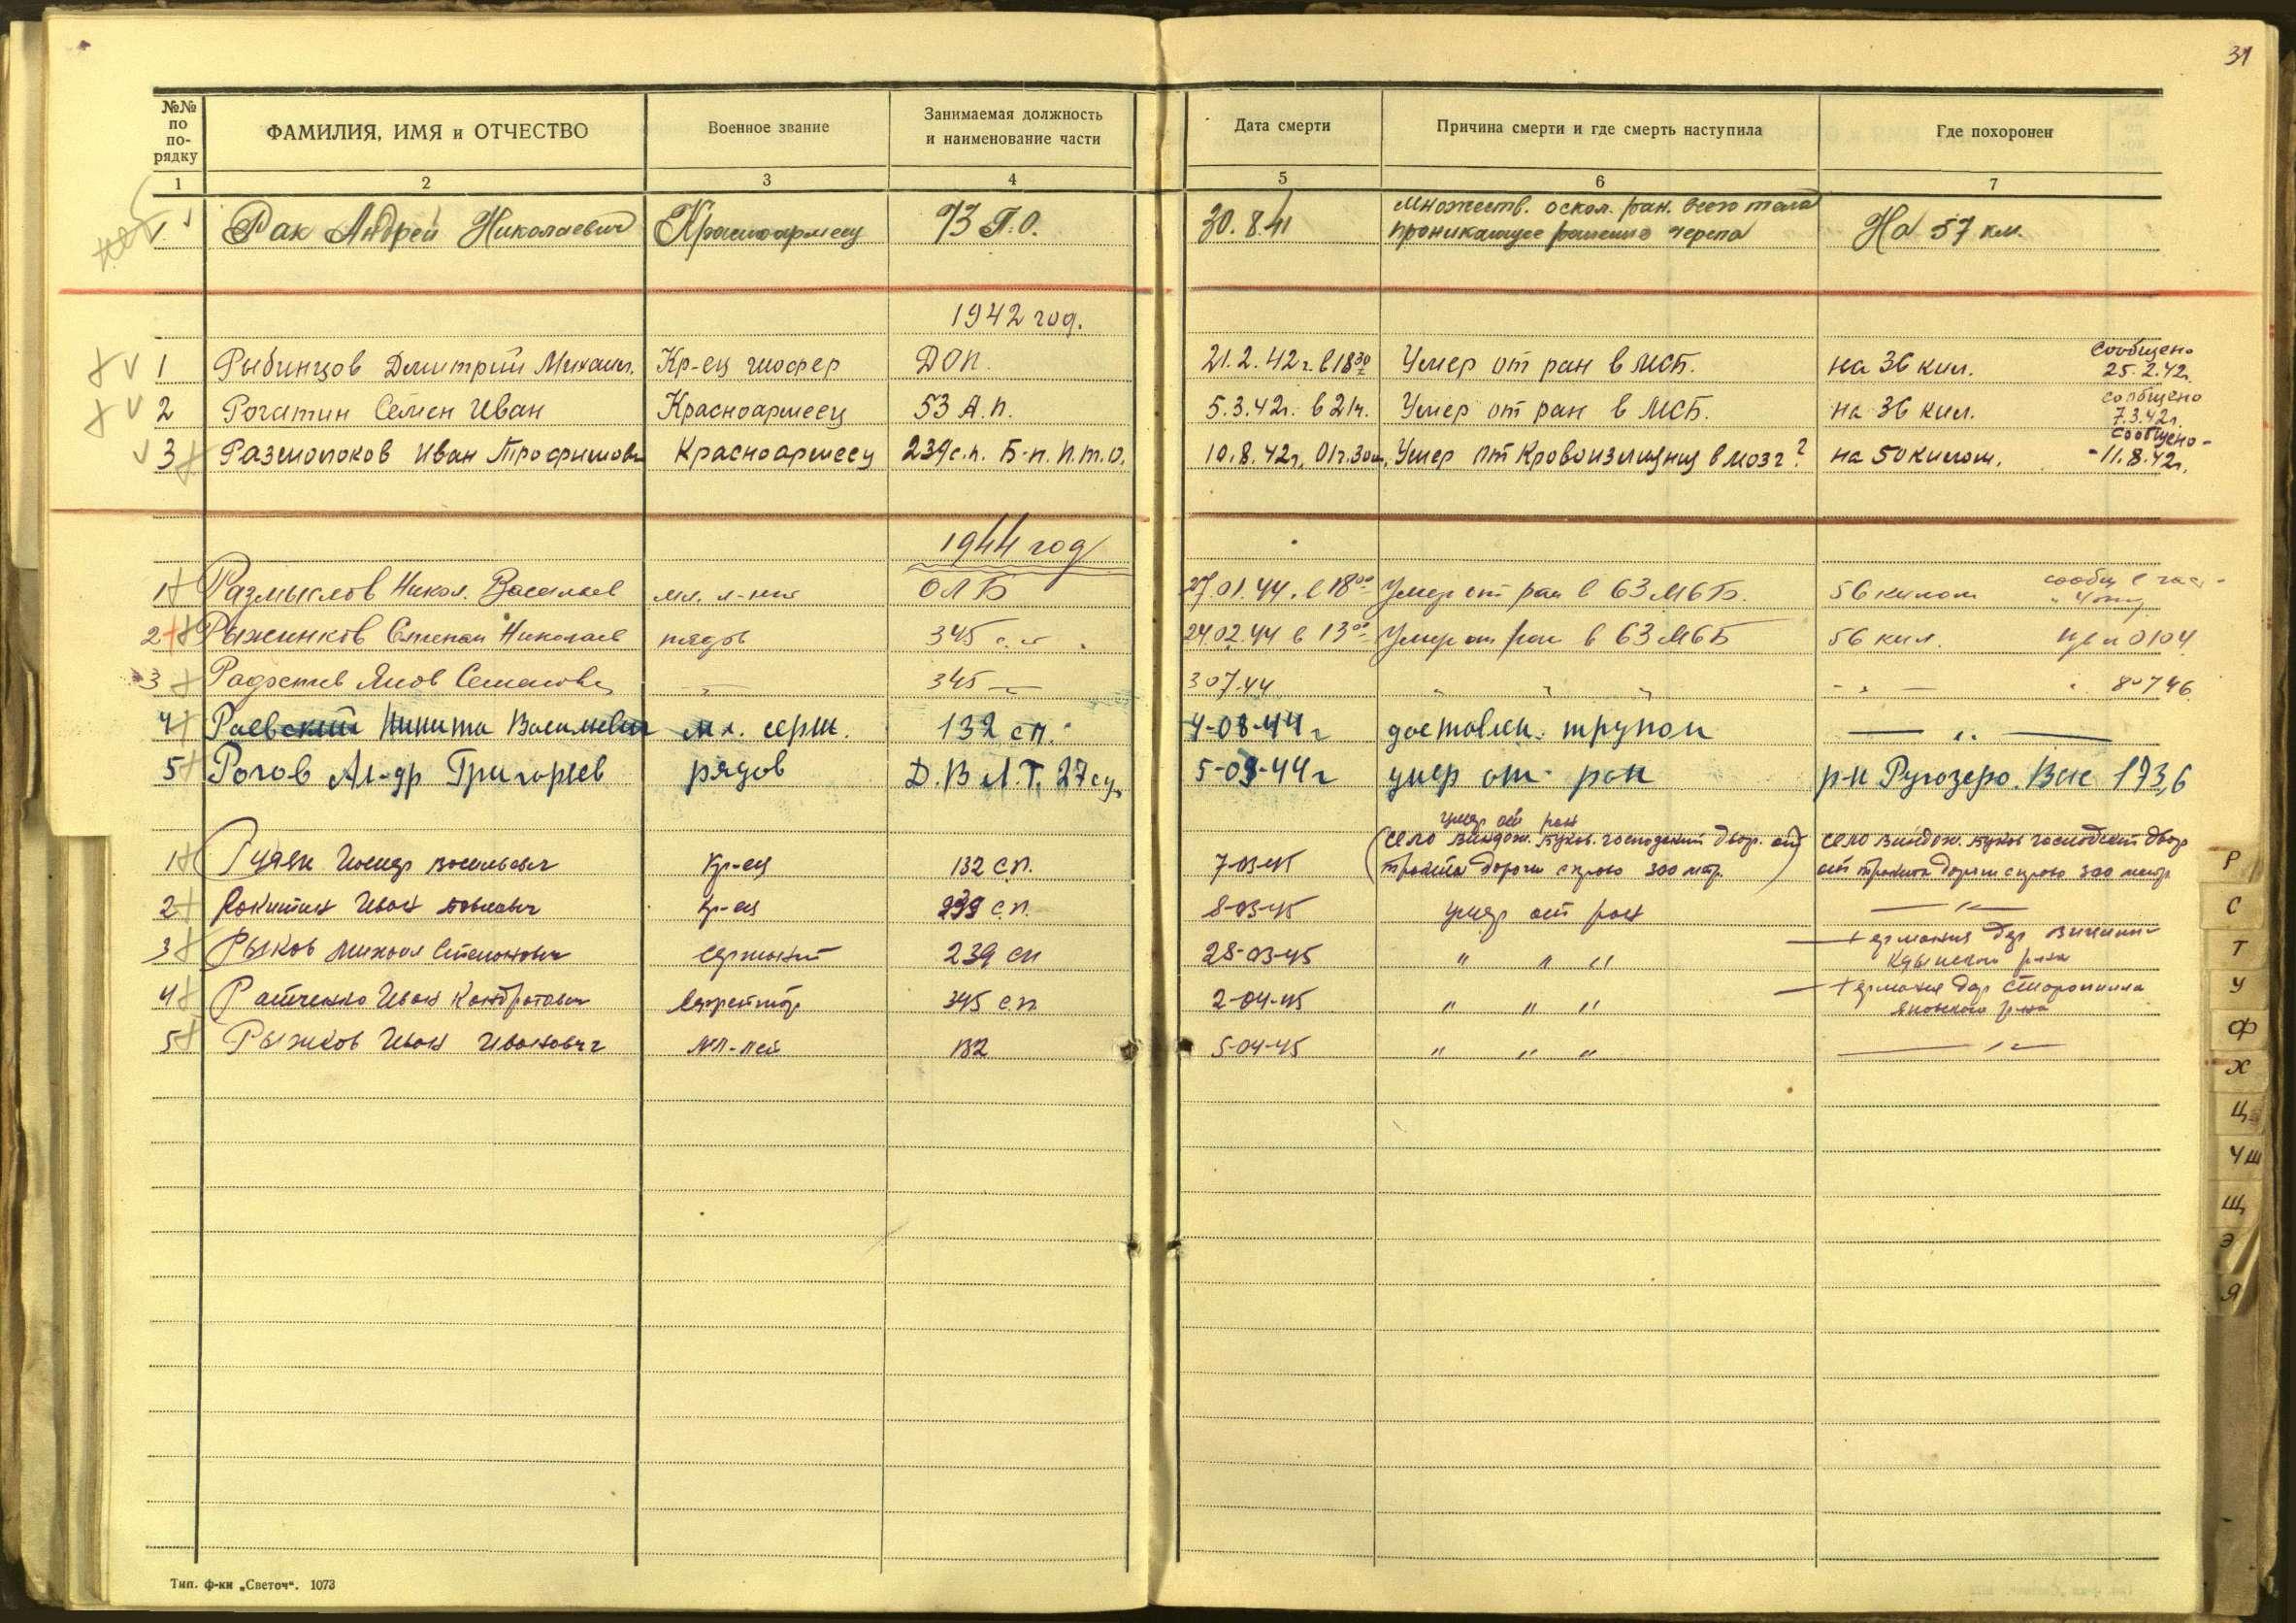 31
№№ по по-рядку ФАМИЛИЯ, ИМЯ и ОТЧЕСТВО Военное звание Занимаемая должность и наименование части Дата смерти Причина смерти и где смерть наступила Где похоронен
1 2 3 4 5 6 7
1 Рак Андрей Николаевич Красноармеец 73 П.О. 30.8.41 множеств. оскол. ран. всего тела проникающее ранение черепа На 57 км.
1942 год.
1 Рыбинцов Дмитрий Михаил. Кр-ец шофер ДОП. 21.2.42 г. в 18 30 Умер от ран в МСБ. на 36 кил. Сообщено 25.2.42г.
2 Рогатин Семен Иван Красноармеец 53 А.П. 5.3.42г. в 21ч. Умер от ран в МСБ. на 36 кил. сообщено 7.3.42г.
3 Иван Трофимови Красноармеец 239 с.п. Б-н. П.Т.О. 10.8.42г. 01ч.30м. Умер от Кровоизлияния в мозг? на 50 килом. Сообщено - 11.8.42г.
1944 год
1 Размыслов Никол. Васильев мл. л-нт ОЛБ 27.01.44. в 18 00 Умер от ран в 63 МСБ. 56 килом
2 Рыжинков Степан Николаев рядов 345 с.п. 24.02.44 в 13 00 Умер от ран в 63 МСБ 56 кил. 0104
3 Яков Семенов — " — 345 — " — 3 07.44 " " " — " — 80746
4 Раевский Никита Васильевич мл. серж. 132 сп. 4-08-44 г доставлен. трупом — " —
5 Рогов Ал-др Григорьев рядов Д.В.Л.Т. 27 5-09-44 г умер от ран р-н Ругозеро. Выс 173,6
1 Василевич кр-ец 132 с.п. 7-03-45 умер от ран (село господский двор. от тракта дороги справо 300 метр.) село господский двор от тракта дороги справо 300 метр
2 Рокитин Иван Павлович кр-ец 239 с.п. 8-03-45 умер от ран — " —
3 Рыков Михаил Степанович сержант 239 сп 28-03-45 " " " Германия дер р-на
4 Иван Кондратович Ефрейтор 345 с.п 2-04-45 " " " Германия дер р-на
5 Рыжков Иван Иванович 132 5-04-45 " " " — " —
Р
С
Т
У
Ф
Х
Ц
Ч Ш
Щ
Э
Я
Тип. ф-ки „Светоч“. 1073